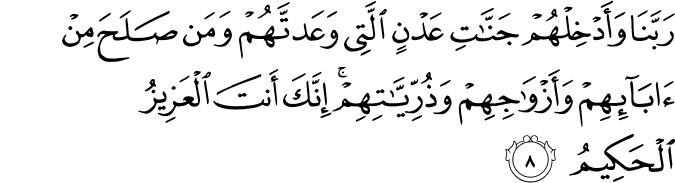 رَبَّنَا وَأَدۡخِلۡهُمۡ جَنَّٰتِ عَدۡنٍ ٱلَّتِي وَعَدتَّهُمۡ وَمَن صَلَحَ مِنۡ
ءَابَآئِهِمۡ وَأَزۡوَٰجِهِمۡ وَذُرِّيَّٰتِهِمۡۚ إِنَّكَ أَنتَ ٱلۡعَزِيزُ
ٱلۡحَكِيمُ ٨